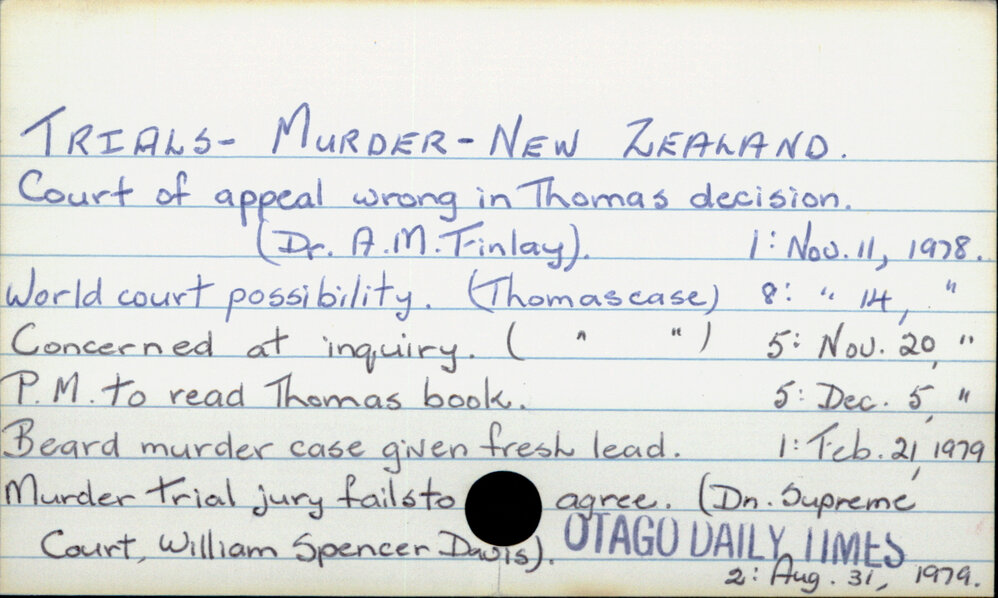 TRIALS- MURDER-NEW ZEALAND.
Court of appeal wrong in Thomas decision.
(Dr. A.M. Finlay). 1: Nov. 11, 1978.
World court possibility. (Thomas case) 8: " 14, "
Concerned at inquiry. ( " " ) 5: Nov. 20, "
P.M. to read Thomas book. 5: Dec. 5, "
Beard murder case given fresh lead. 1: Feb. 21, 1979
Murder trial jury fails to agree. (Dn. Supreme
Court, William Spencer Davis). OTAGO DAILY TIMES
2: Aug. 31, 1979.